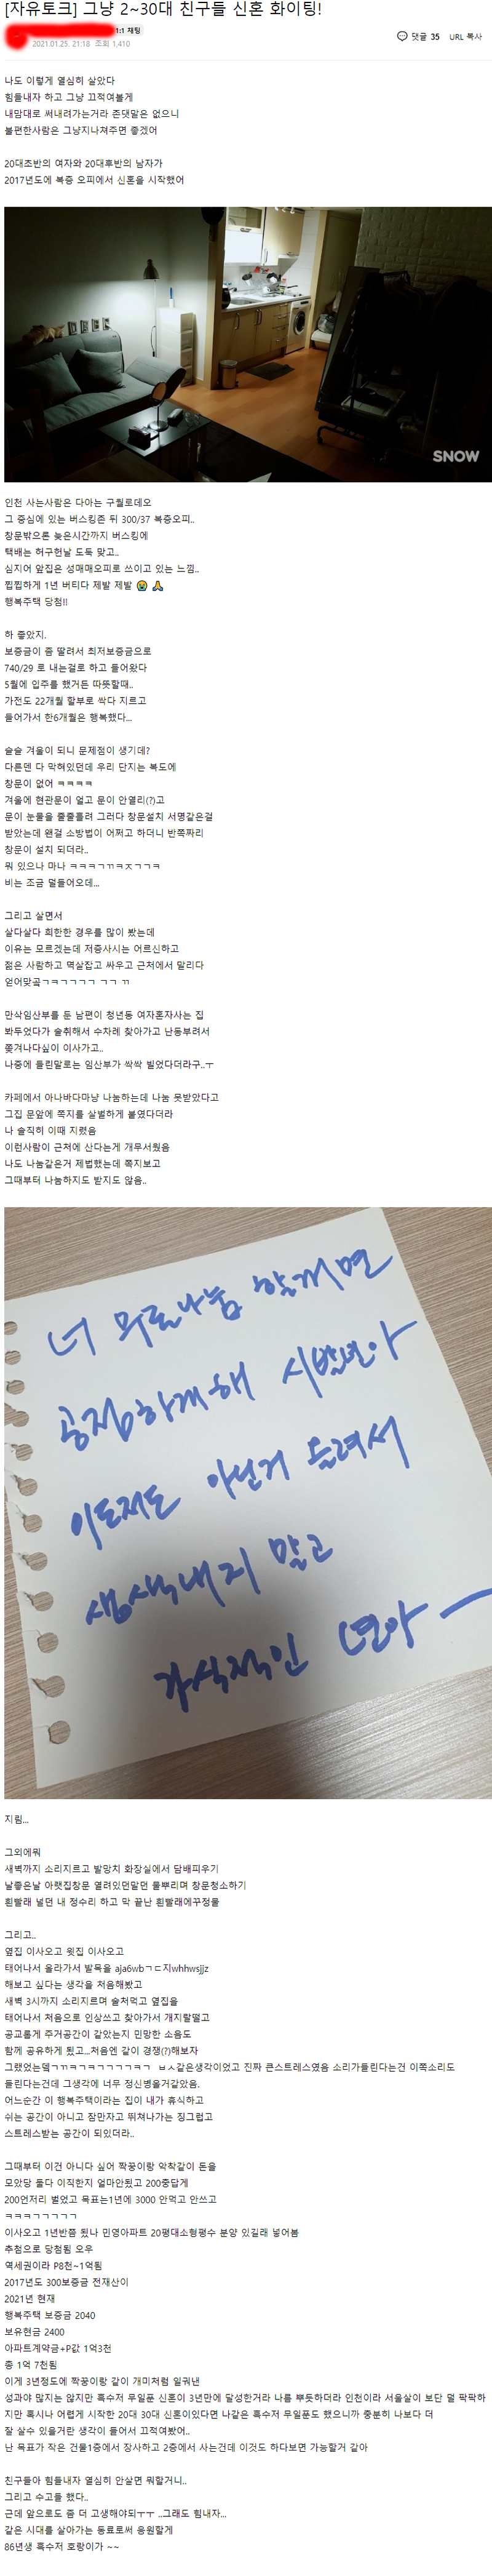 [자유토크] 그냥 2~30대 친구들 신혼 화이팅!
1:1 채팅
2021.01.25. 21:18 조회 1,410
댓글 35 URL 복사
나도 이렇게 열심히 살았다
힘들내자 하고 그냥 끄적여볼게
내맘대로 써내려가는거라 존댓말은 없으니
불편한사람은 그냥지나쳐주면 좋겠어
20대초반의 여자와 20대후반의 남자가
2017년도에 복층 오피에서 신혼을 시작했어
SNOW
인천 사는사람은 다아는 구월로데오
그 중심에 있는 버스킹존 뒤 300/37 복층오피..
창문밖으론 늦은시간까지 버스킹에
택배는 허구헌날 도둑 맞고..
심지어 앞집은 성매매오피로 쓰이고 있는 느낌..
찝찝하게 1년 버티다 제발 제발 😭 🙏
행복주택 당첨!!
하 좋았지.
보증금이 쫌 딸려서 최저보증금으로
740/29 로 내는걸로 하고 들어왔다
5월에 입주를 했거든 따뜻할때..
가전도 22개월 할부로 싹다 지르고
들어가서 한6개월은 행복했다...
슬슬 겨울이 되니 문제점이 생기데?
다른덴 다 막혀있던데 우리 단지는 복도에
창문이 없어 ㅋㅋㅋㅋ
겨울에 현관문이 얼고 문이 안열리(?)고
문이 눈물을 줄줄흘려 그러다 창문설치 서명같은걸
받았는데 왠걸 소방법이 어쩌고 하더니 반쪽짜리
창문이 설치 되더라..
뭐 있으나 마나 ㅋㅋㅋㄱㄲㅋㅈㄱㄱㅋ
비는 조금 덜들어오데...
그리고 살면서
살다살다 희한한 경우를 많이 봤는데
이유는 모르겠는데 저층사시는 어르신하고
젊은 사람하고 멱살잡고 싸우고 근처에서 말리다
얻어맞곸ㄱㅋㄱㄱㄱㄱ ㄱㄱ ㄲ
만삭임산부를 둔 남편이 청년동 여자혼자사는 집
봐두었다가 술취해서 수차례 찾아가고 난동부려서
쫒겨나다싶이 이사가고..
나중에 들린말로는 임산부가 싹싹 빌었다더라구..ㅜ
카페에서 아나바다마냥 나눔하는데 나눔 못받았다고
그집 문앞에 쪽지를 살벌하게 붙였다더라
나 솔직히 이때 지렸음
이런사람이 근처에 산다는게 개무서웠음
나도 나눔같은거 제법했는데 쪽지보고
그때부터 나눔하지도 받지도 않음..
너 무료나눔 할꺼면
공정하게해 시발년아
이도저도 아닌거 들려서
생색내지 말고
가식적인 년아ㅡ
지림...
그외에뭐
새벽까지 소리지르고 발망치 화장실에서 담배피우기
날좋은날 아랫집창문 열려있던말던 물뿌리며 창문청소하기
흰빨래 널던 내 정수리 하고 막 끝난 흰빨래에꾸정물
그리고..
옆집 이사오고 윗집 이사오고
태어나서 올라가서 발목을 aja6wbㄱㄷ지whhwsjjz
해보고 싶다는 생각을 처음해봤고
새벽 3시까지 소리지르며 술처먹고 옆집을
태어나서 처음으로 인상쓰고 찾아가서 개지랄떨고
공교롭게 주거공간이 같았는지 민망한 소음도
함께 공유하게 됬고...처음엔 같이 경쟁(?)해보자
그랬었는뎈ㄱㄲㅋㄱㅋㄱㄱㄱㄱㅋㄱ ㅂㅅ같은생각이었고 진짜 큰스트레스였음 소리가들린다는건 이쪽소리도
들린다는건데 그생각에 너무 정신병올거같았음.
어느순간 이 행복주택이라는 집이 내가 휴식하고
쉬는 공간이 아니고 잠만자고 뛰쳐나가는 징그럽고
스트레스받는 공간이 되있더라..
그때부터 이건 아니다 싶어 짝꿍이랑 악착같이 돈을
모았당 둘다 이직한지 얼마안됬고 200중답게
200언저리 벌었고 목표는1년에 3000 안먹고 안쓰고
ㅋㅋㅋㄱㄱㄱㄱㄱ
이사오고 1년반쯤 됬나 민영아파트 20평대소형평수 분양 있길래 넣어봄
추첨으로 당첨됨 오우
역세권이라 P8천~1억됨
2017년도 300보증금 전재산이
2021년 현재
행복주택 보증금 2040
보유현금 2400
아파트계약금+P값 1억3천
총 1억 7천됨
이게 3년정도에 짝꿍이랑 같이 개미처럼 일궈낸
성과야 많지는 않지만 흑수저 무일푼 신혼이 3년만에 달성한거라 나름 뿌듯하더라 인천이라 서울살이 보단 덜 팍팍하
지만 혹시나 어렵게 시작한 20대 30대 신혼이있다면 나같은 흑수저 무일푼도 했으니까 충분히 나보다 더
잘 살수 있을거란 생각이 들어서 끄적여봤어..
난 목표가 작은 건물1층에서 장사하고 2층에서 사는건데 이것도 하다보면 가능할거 같아
친구들아 힘들내자 열심히 안살면 뭐할거니..
그리고 수고들 했다..
근데 앞으로도 쫌 더 고생해야되ㅜㅜ ..그래도 힘내자...
같은 시대를 살아가는 동료로써 응원할게
86년생 흑수저 호랑이가 ~~